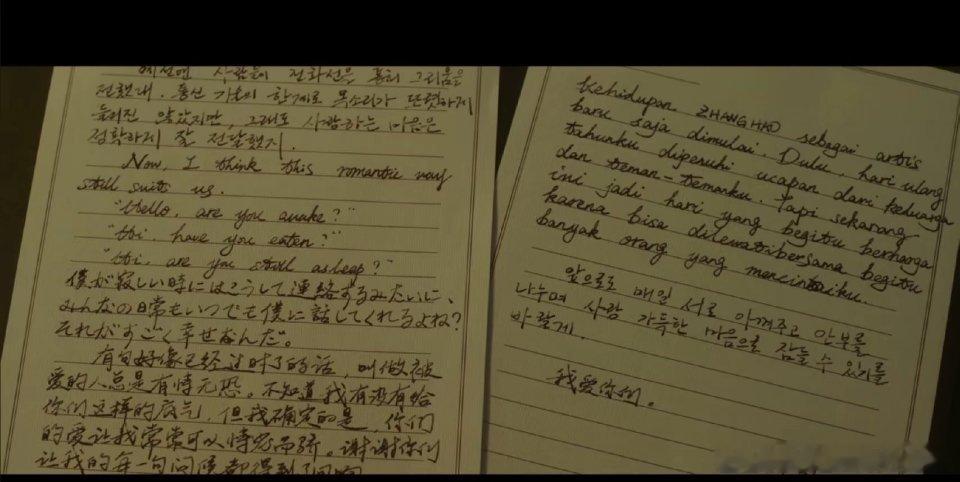 예전엔 사람들이 전화선을 통해 그리움을
전했대. 통신 기술의 한계로 목소리가 또렷하게
들리진 않았지만, 그래도 사랑하는 마음은
정확하게 잘 전달했지.
Now, I think this romantic way
still suits us.
"Hello, are you awake?"
"Hi, have you eaten?"
"Hi, are you still asleep?"
僕が寂しい時にはこうして連絡するみたいに、
みんなの日常もいつでも僕に話してくれるよね?
それがすごく幸せなんだ。
有句好像已经过时了的话，叫做被
爱的人总是有恃无恐。不知道我有没有给
你们这样的底气，但我确定的是，你们
的爱让我常常可以恃宠而骄。谢谢你们
让我的每一句问候都得到了回响
Kehidupan ZHANGHAO sebagai artis
baru saja dimulai. Dulu, hari ulang
tahunku dipenuhi ucapan dari keluarga
dan teman-temanku. Tapi sekarang
ini jadi hari yang begitu berharga
karena bisa dilewatibersama begitu
banyak orang yang mencintaiku.
앞으로도 매일 서로 아껴주고 안부를
나누며 사랑 가득한 마음으로 잠들 수 있기를
바랄게.
我爱你们。